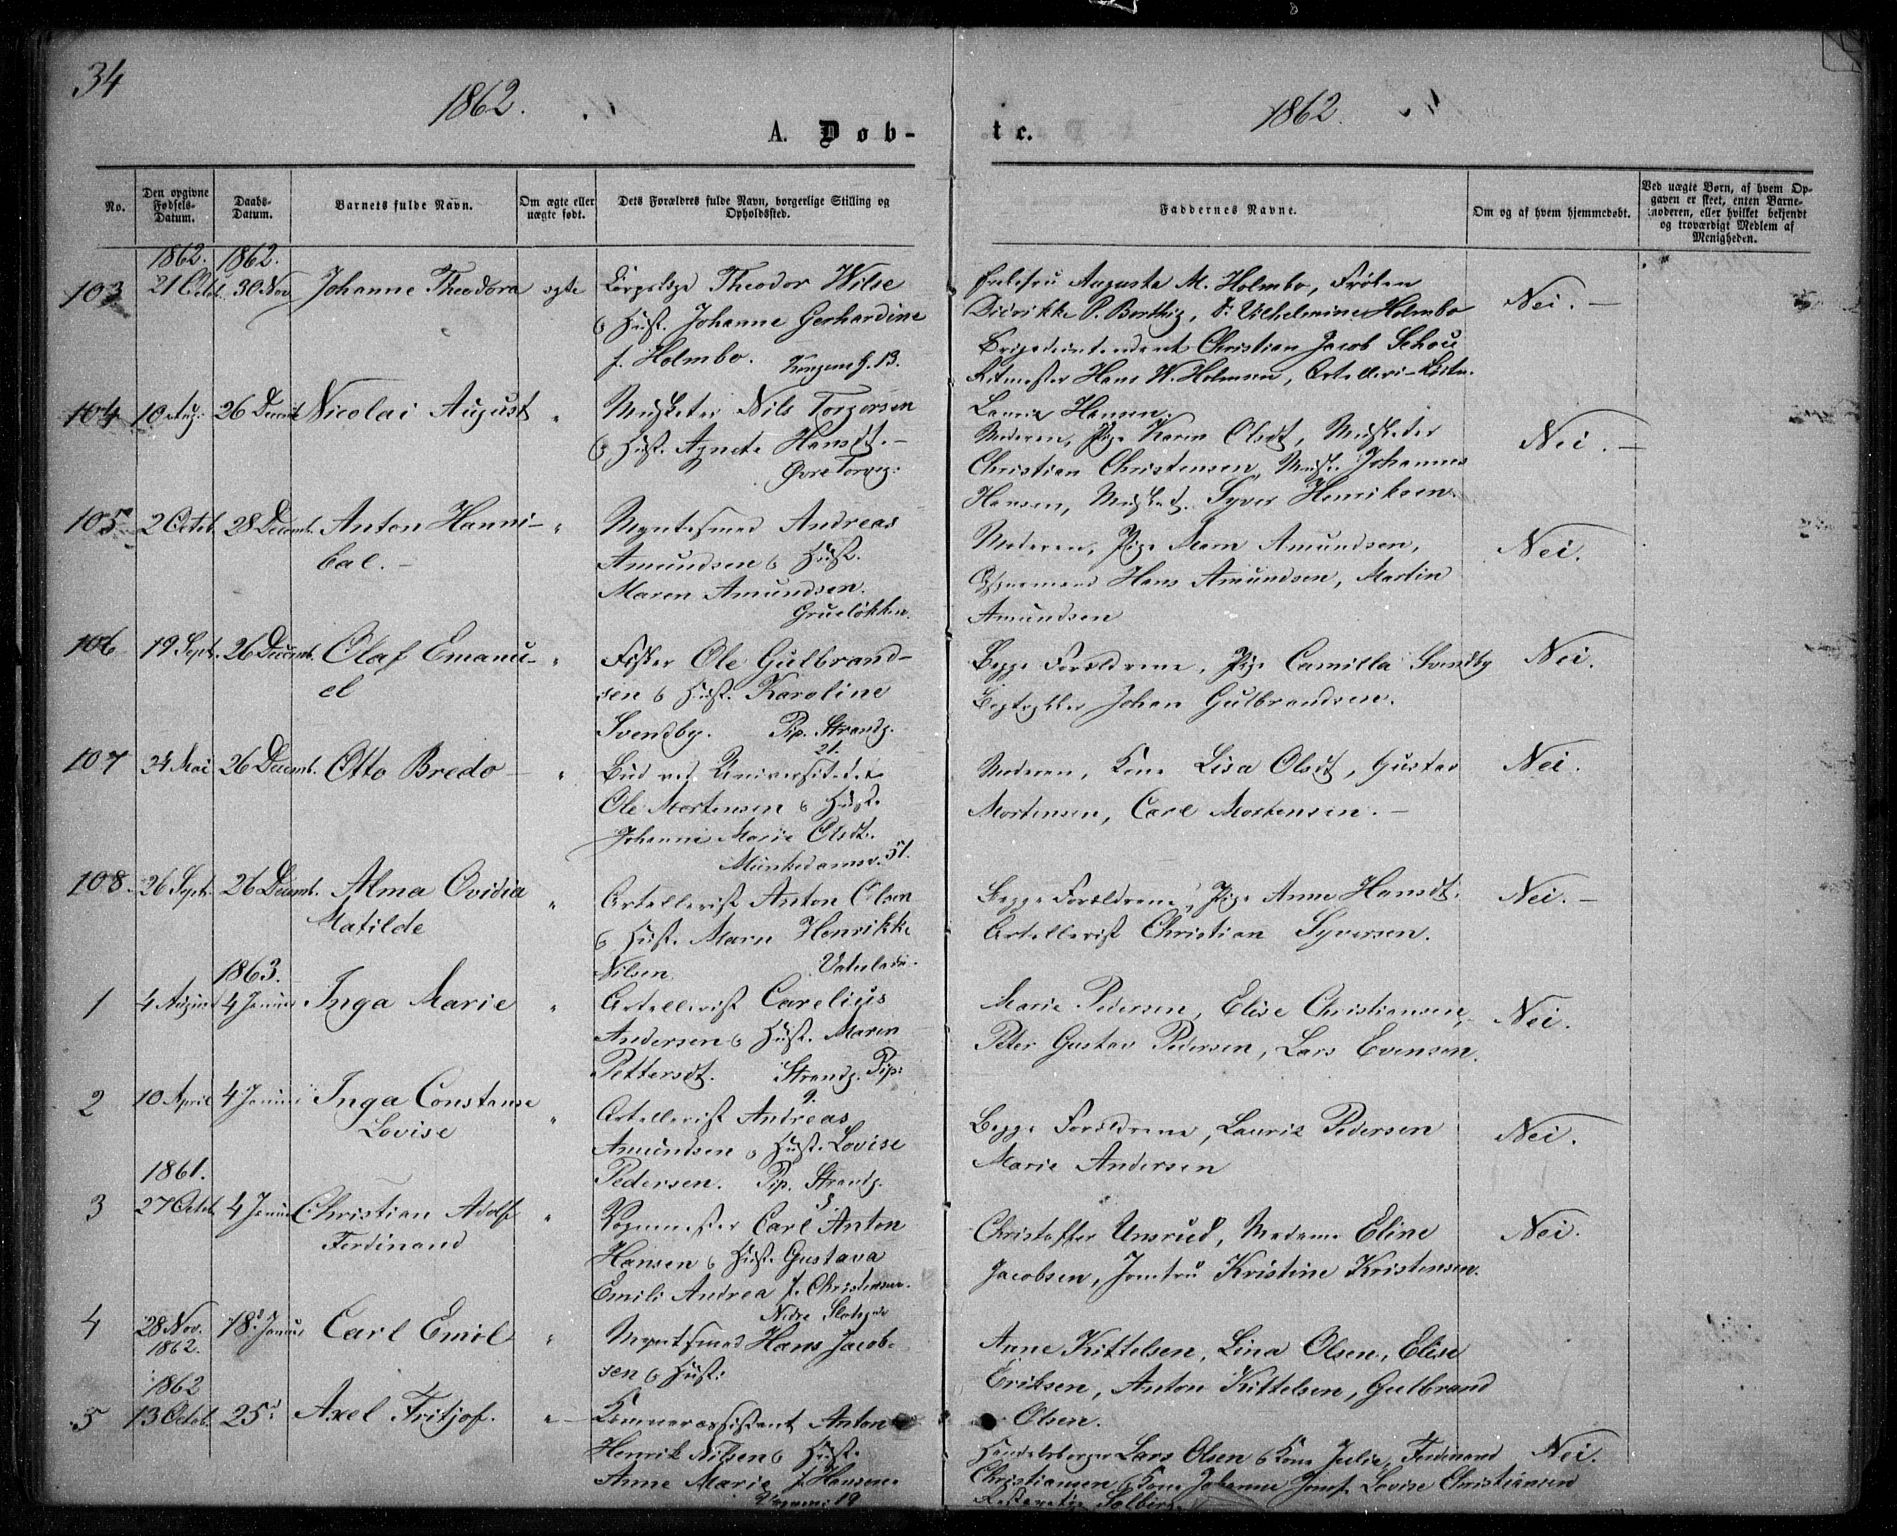 34
1862.
1862.
A. Døb-
te.
No.
Den opgivne Fødsels-Datum.
Daabs-Datum.
Barnets fulde Navn.
Om ægte eller uægte født.
Dets Forældres fulde Navn, borgerlige Stilling og Opholdssted.
Faddernes Navne.
Om og af hvem hjemmedøbt.
Ved uægte Børn, af hvem Opgaven er skeet, enten Barnemoderen, eller hvilket bekjendt og troværdigt Medlem af Menigheden.
1862. 1862.
103 21 Octob. 30 Nov Johanne Theodora ægte Theodor Wilse
& Hust. Johanne Gerhardine
f. Holmbo. Kongens g. 13.
Augusta M. Holmbo, Frøken
Didrikke P. , Vilhelmine Holmbo
Christian Jacob Schou
Ritmester Hans W. Holmsen,
Lauriz Hansen.
Nei. –
104 10 Aug. 26 Decemb Nicolai August " Musketer Nils Torgersen
& Hust. Agnete Hansdt. –
Øvre Torvg.
Moderen, Pige Karen Olsdt, Musketer
Christian Christensen, Musk. Johannes
Hansen, Musket. Syver Henriksen.
Nei. –
105 2 Octob. 28 Decemb. Anton Hanni-
bal. –
" Myntsmed Andreas
Amundsen & Hust.
Maren Amundsen.
Grueløkken.
Moderen, Pige Maren Amundsen,
Hans Amundsen, Martin
Amundsen
Nei.
106 19 Septb. 26 Decemb. Olaf Emanu-
el
" Fisker Ole Gulbrand-
sen & Hust. Karoline
Svendby. Pip. Strandg.
21.
Begge Forældrene, Pige Camilla Svendby
Bogtrykker Johan Gulbrandsen.
Nei.
107 24 Mai 26 Decemb. Otto Bredo – " Bud ved Universitetet
Ole Mortensen & Hust.
Johanne Marie Olsdt.
Munkedamsv. 51.
Moderen, Kone Lisa Olsdt, Gustav
Mortensen, Carl Mortensen. –
Nei.
108. 26 Septb. 26 Decemb. Alma Ovidia
Matilde
" Artellerist Anton Olsen
& Hust. Maren Henrikke
Nilsen.
Begge Forældrene, Pige Anne Hansdt.
Artellerist Christian Syversen.
Nei. –
1863.
1 4 August 4 Januar Inga Marie " Artellerist Carelius
Andersen & Hust. Maren
Pettersdt. Strandg. Pip:
9.
Marie Pedersen, Elise Christiansen,
Peter Gustav Pedersen, Lars Evensen.
Nei.
2 10 April 4 Januar Inga Constanse
Lovise
" Artellerist Andreas
Amundsen & Hust. Lovise
Pedersen. Pip. Strandg.
5
Begge Forældrene, Lauriz Pedersen
Marie Andersen
Nei.
1861.
3 27 Octob. 4 Januar Christian Adolf
Ferdinand
" Vognmester Carl Anton
Hansen & Hust. Gustava
Emili Andrea f. Christensen.
Nedre Slotsgade
Christoffer Unsrud, Madame Eline
Jacobsen, Jomfru Kristine Kristensen.
Nei.
4 28 Nov.
1862.
18d Januar Carl Emil " Myntsmed Hans Jacob-
sen & Hust:
Anne Kittelsen, Lina Olsen, Elise
Eriksen, Anton Kittelsen, Gulbrand
Olsen.
1862
5 13 Octob. 25d Axel Fritjof. " Kæmnerassistent Anton
Henrik Nilsen & Hust.
Anne Marie f. Hansen.
19
Handelsborger Lars Olsen & Kone Julie, Ferdinand
Christiansen & Kone Johanne Jomf. Lovise Christiansen
Nei.